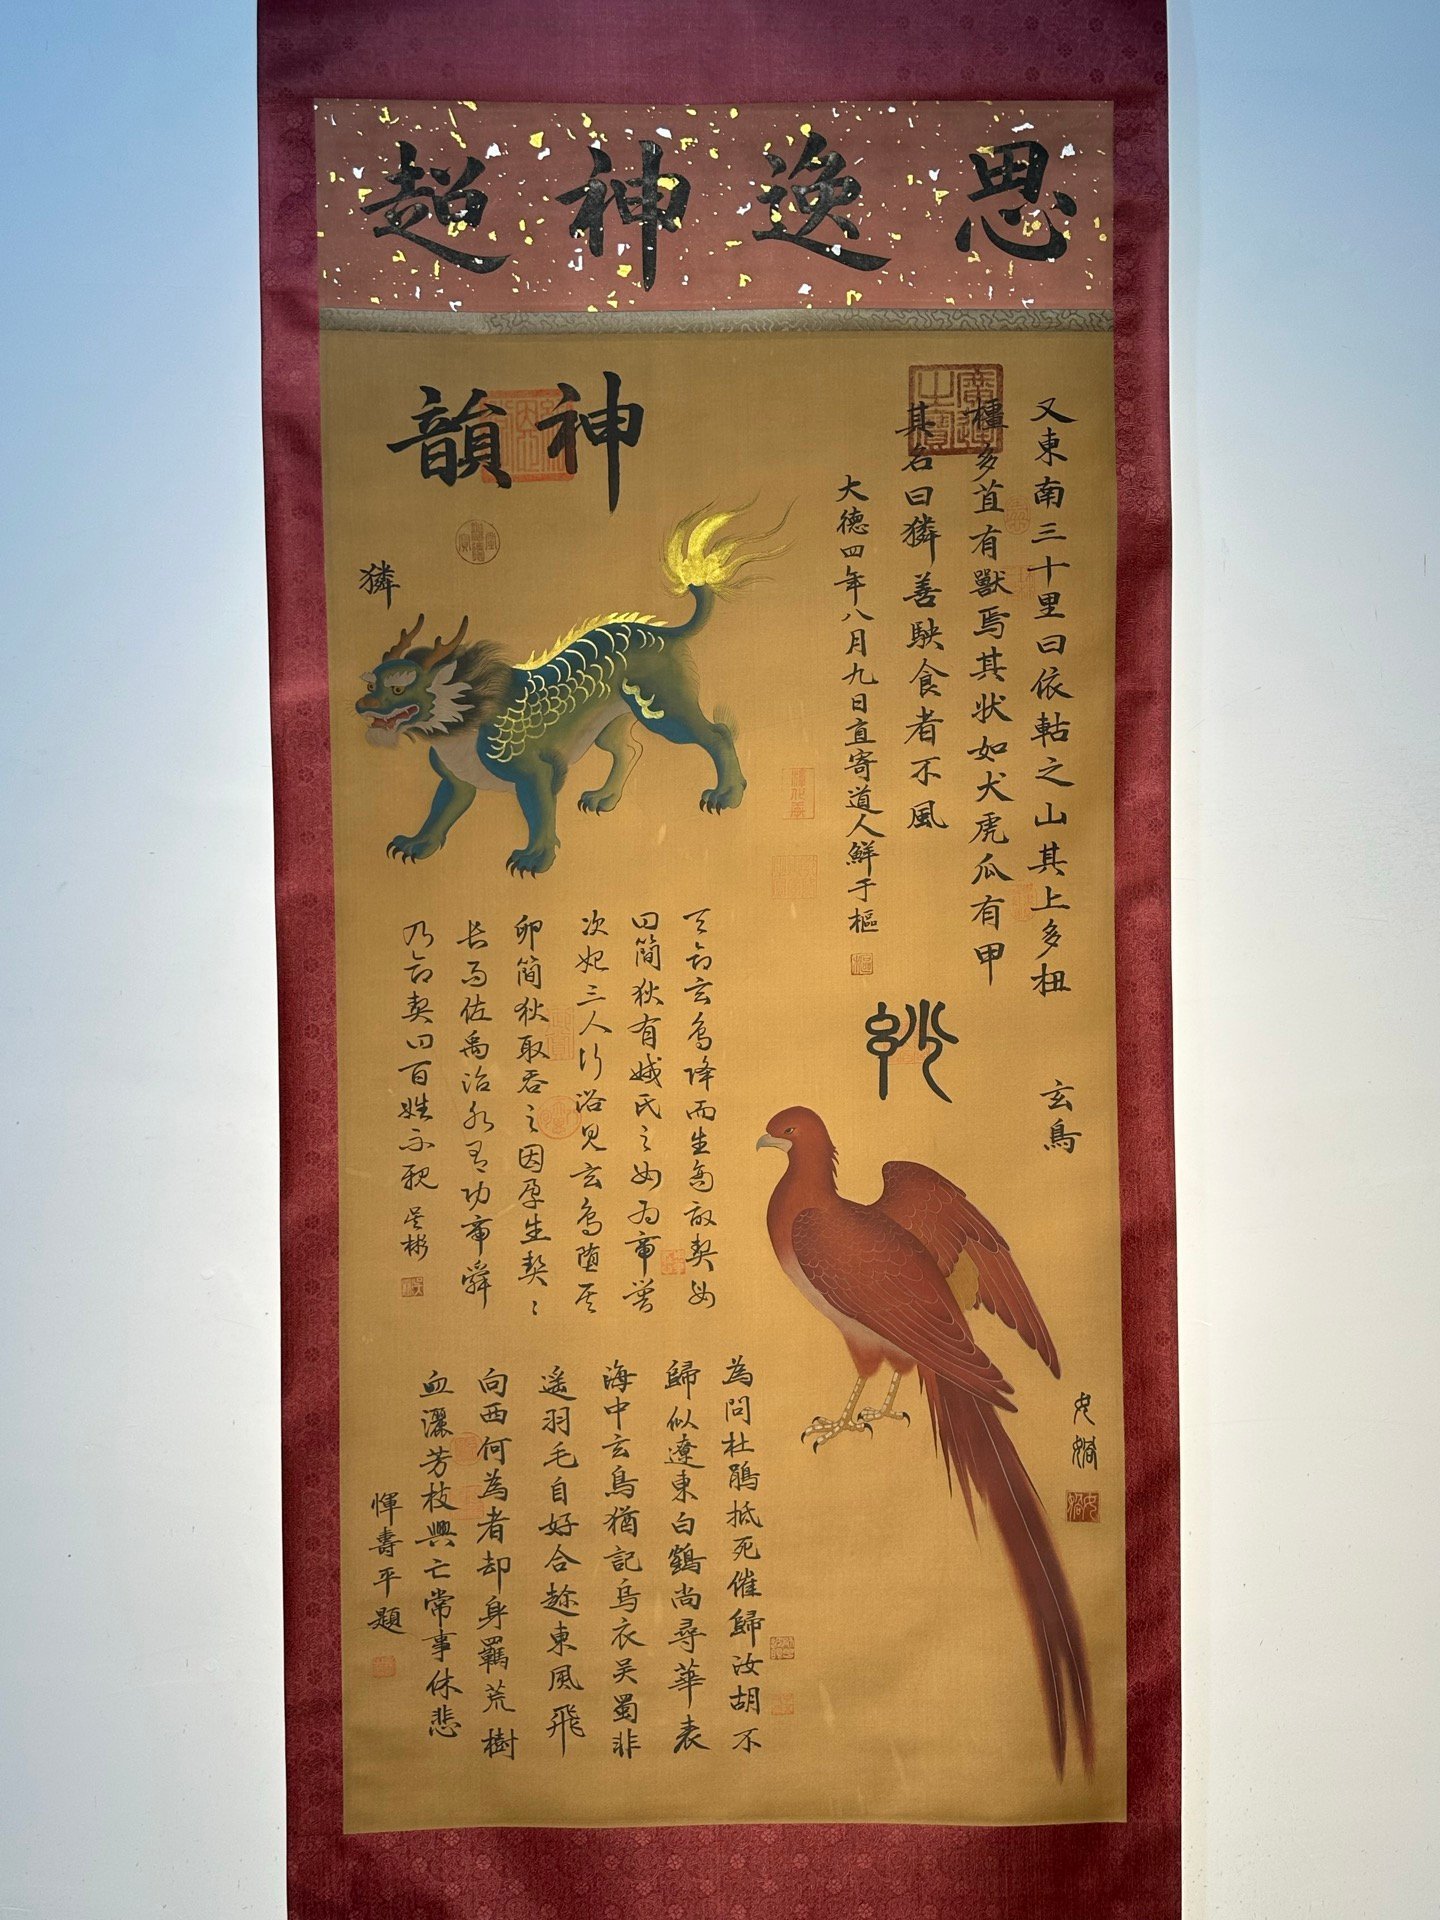 思逸神超
神韻
又東南三十里曰依軲之山其上多杻
橿多苴有獸焉其狀如犬虎爪有甲
其名曰獜善駚食者不風
大德四年八月九日直寄道人鮮于樞
獜
妙
玄鳥
天命玄鳥降而生商故契母
曰簡狄有娀氏之女為帝嚳
次妃三人行浴見玄鳥墮其
卵簡狄取吞之因孕生契契
長而佐禹治水有功帝舜
乃命契曰百姓不親
吳彬
為問杜鵑抵死催歸汝胡不
歸似遼東白鶴尚尋華表
海中玄鳥猶記烏衣吳蜀非
遙羽毛自好合趂東風飛
向西何為者却身羈荒樹
血灑芳枝興亡常事休悲
惲壽平題